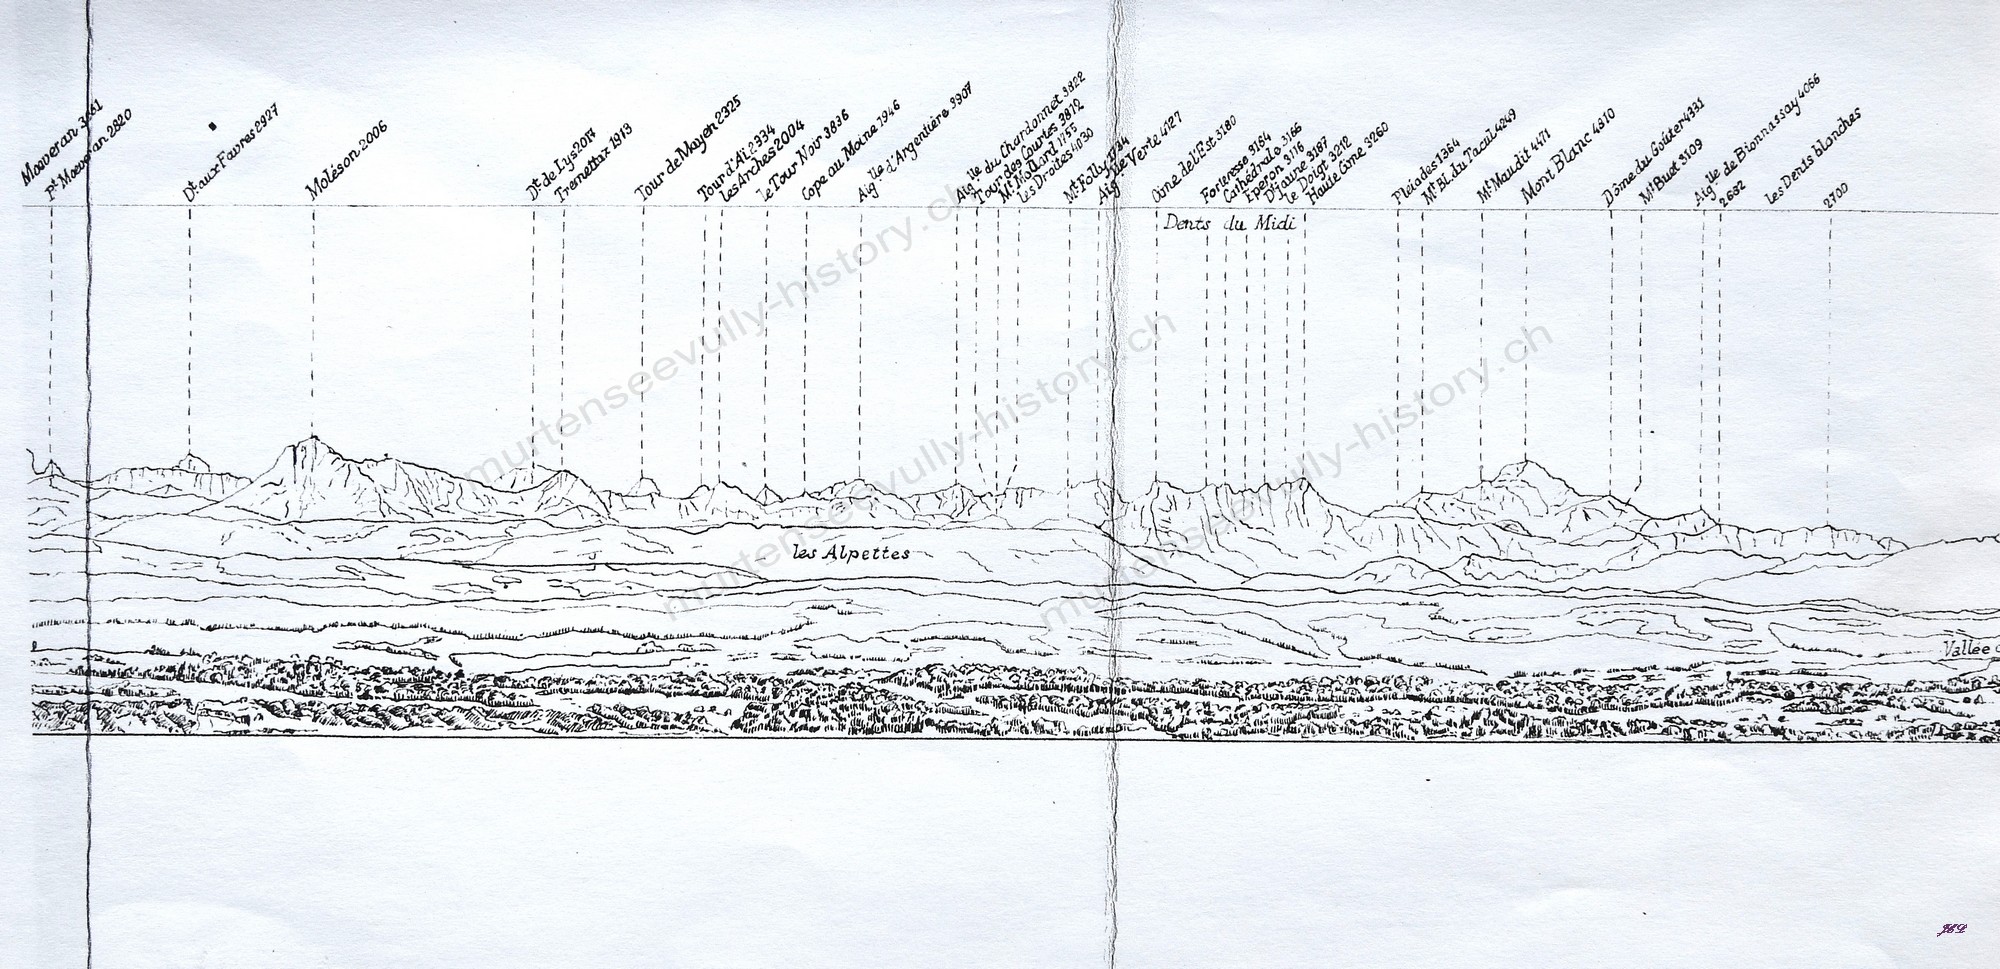 Moeveran 3061
Pt Moeveran 2820
Dt aux Favres 2927
Moléson 2006
Dt de Lys 2017
Tremettaz 1913
Tour de Mayen 2325
Tour d'Aï 2334
les Arches 2004
le Tour Noir 3836
Cape au Moine 1946
Aiglle d'Argentière 3907
Aiglle du Chardonnet 3822
Tour des Courtes 3872
Mt Mollard 1755
les Droites 4030
Mt Folly 1734
Aiglle Verte 4127
Cime de l'Est 3180
Forteresse 3164
Cathédrale 3166
Eperon 3116
Dt jaune 3187
le Doigt 3212
Haute Cime 3260
Pléiades 1364
Mt Bl. du Tacul 4249
Mt Maudit 4471
Mont Blanc 4810
Dôme du Goûter 4331
Mt Buet 3109
Aiglle de Bionnassay 4066
2682
les Dents blanches
2700
Dents du Midi
les Alpettes
Vallée
murtenseevully-history.ch
murtenseevully-history.ch
murtenseevully-history.ch